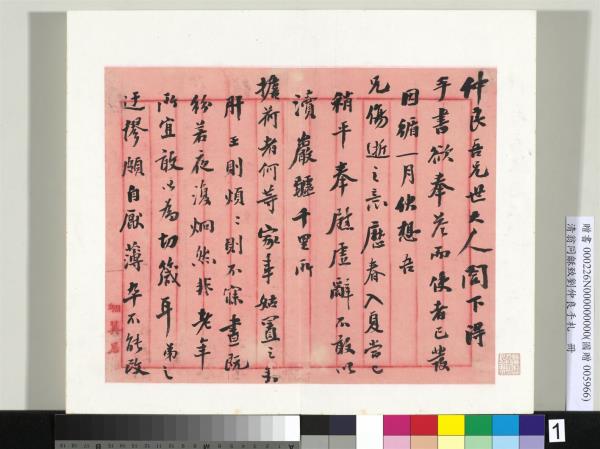 仲良吾兄世大人閣下得
手書欲奉答而使者已發
因循一月伏想吾
兄傷逝之意歷春入夏當已
稍平奉慰虛辭不敢以
瀆嚴聽千里所
擔荷者何等家事姑置之
肝王則煩煩則不寐晝既
紛若夜復炯然非老年
所宜敢以為切箴耳弟之
迂謬頗自厭薄卒不能改
贈書 000226N000000000(國贈 005966)
清翁同龢致劉仲良手札 冊
1